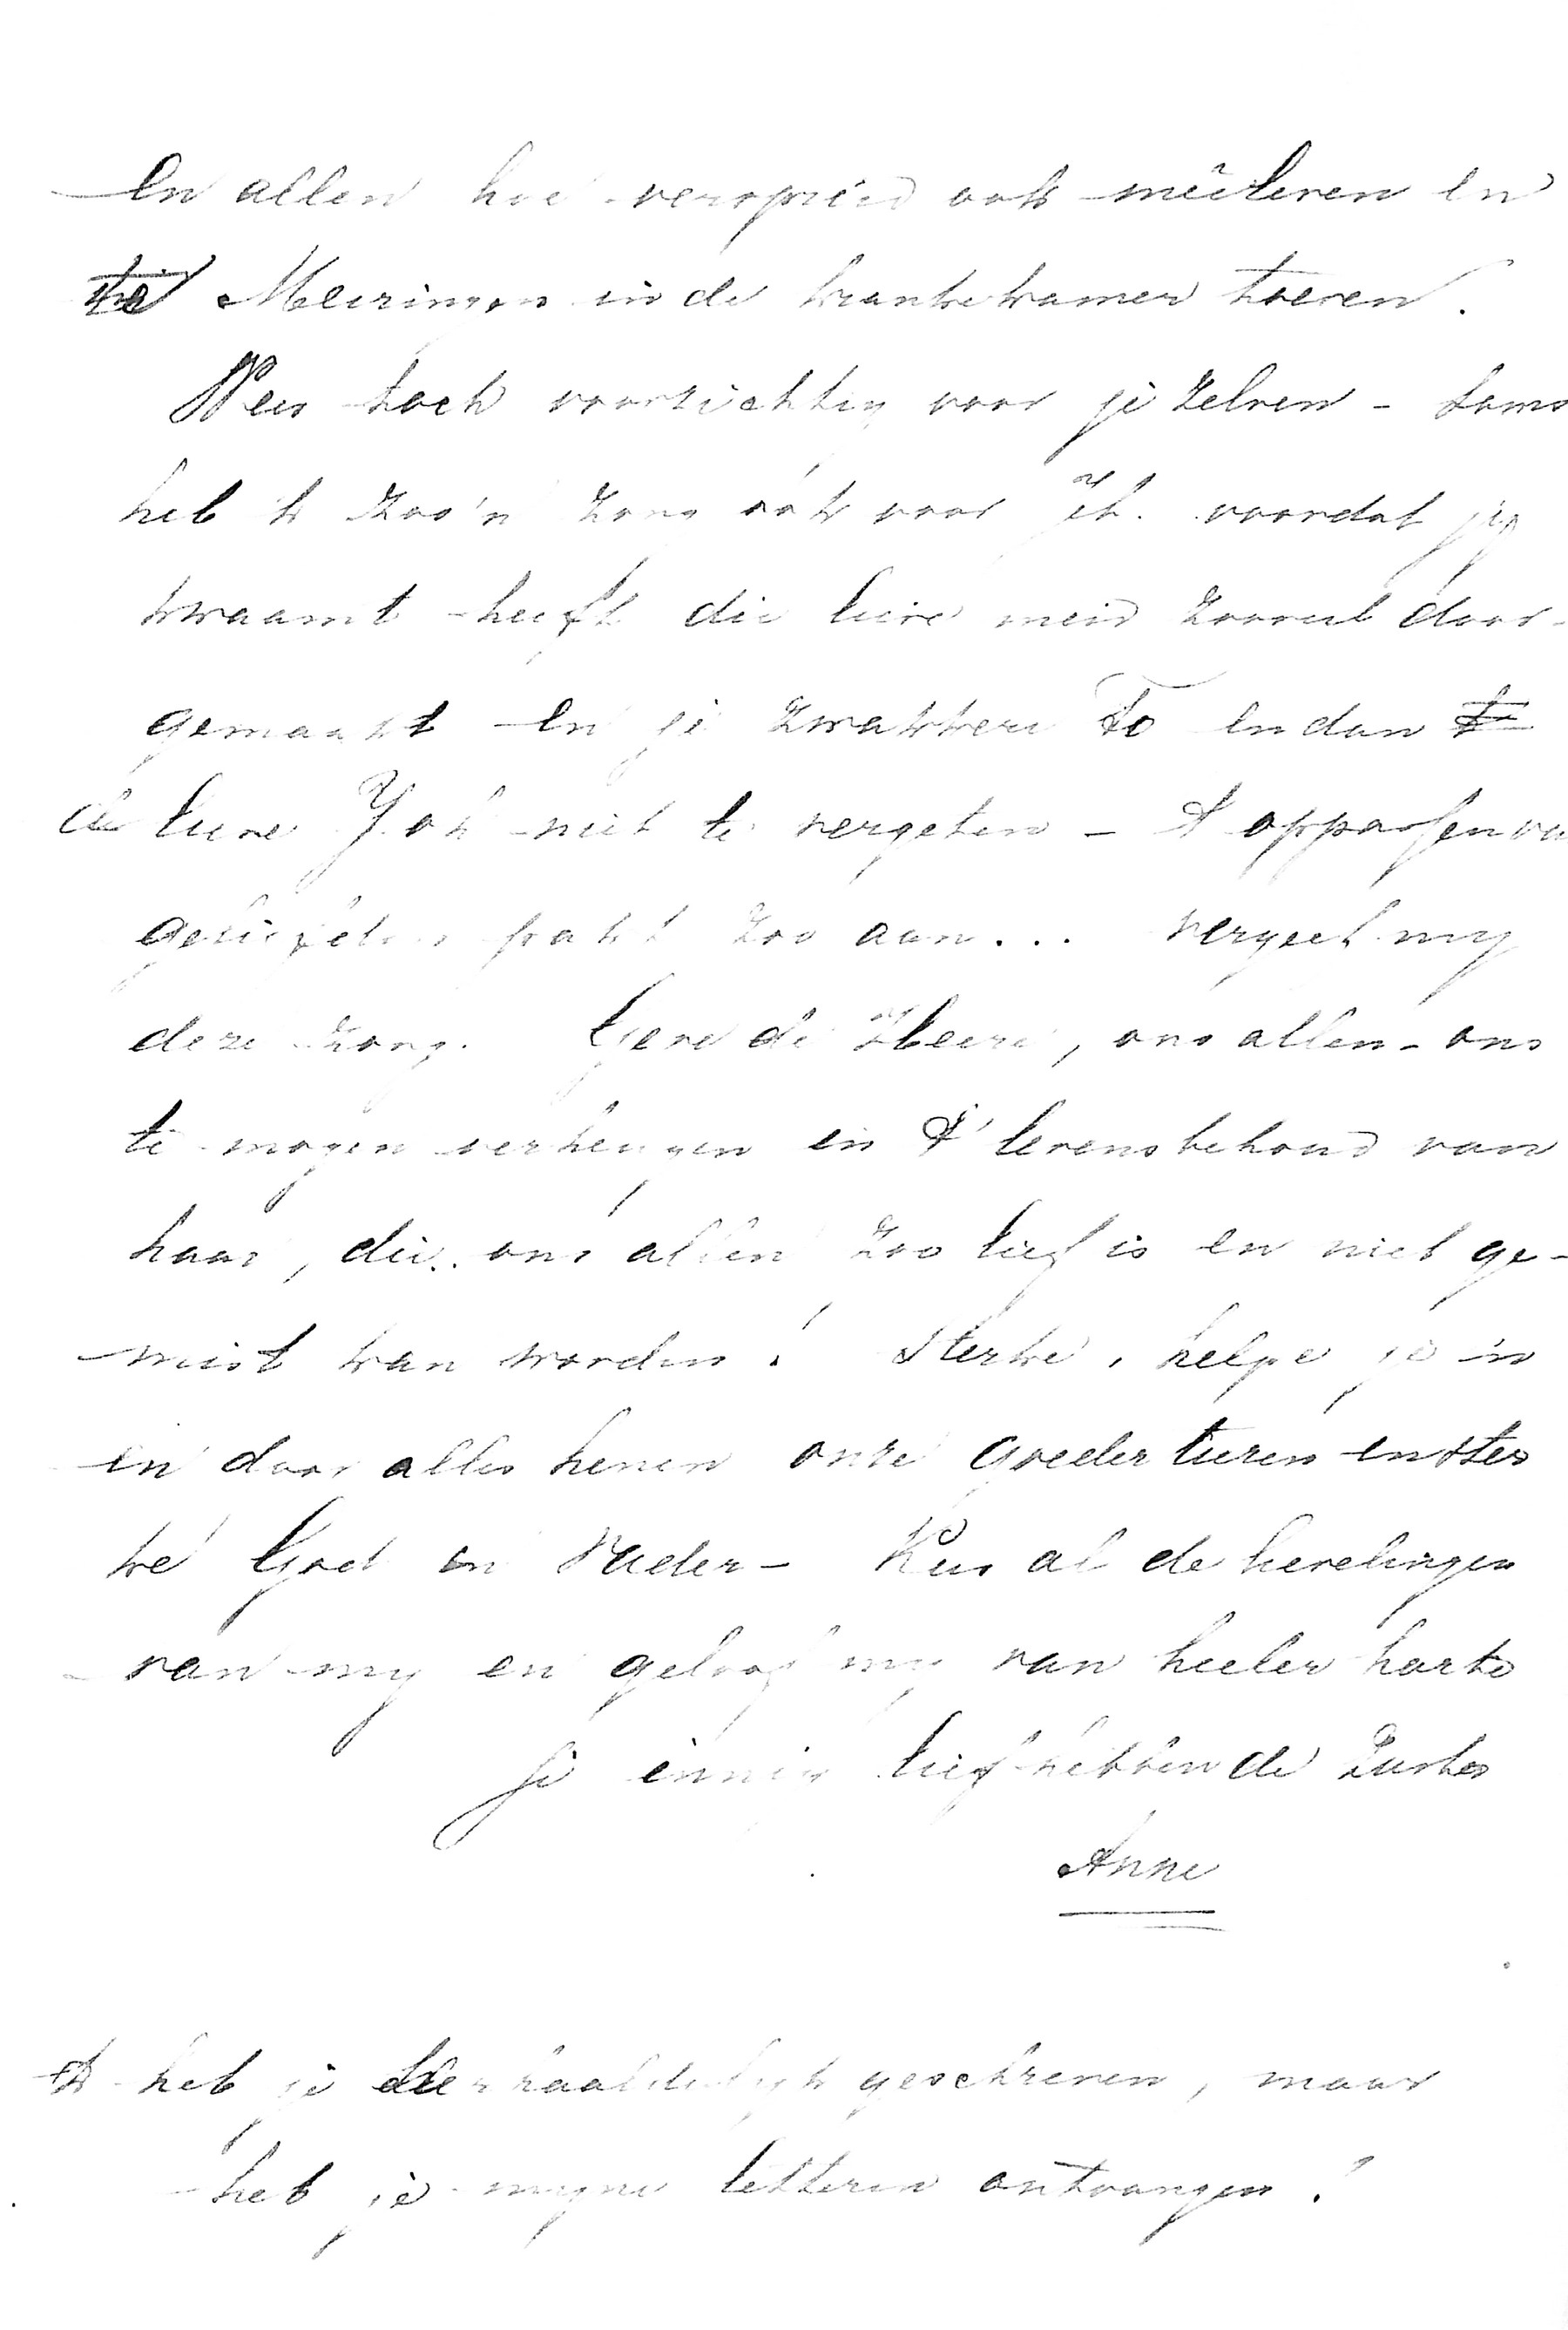 En allen hoe verspreid ook meêleven en
te Meiringen in de krankekamer toeven.
Wees toch voorzichtig voor je zelven - soms
heb k zoo'n zorg ook voor voordat jy
kwaamt heeft die lieve meid zooveel door-
gemaakt En je zwakkere To en dan
de lieve Joh niet te vergeten - t oppassen va
geliefden pakt zoo aan... vergeef my
deze zorg. Geve de Heere, ons allen - ons
te mogen verheugen in t' levensbehoud van
haar, die ons allen zoo lief is en niet ge-
mist kan worden! Sterke, helpe je in
en door alles henen onze goedertieren en ster
ke God en Vader - Kus al de lievelingen
van my en geloof my van heeler harte
Je innig liefhebbende Zuster
Anne
k heb je herhaaldelyk geschreven, maar
heb je myne letteren ontvangen?